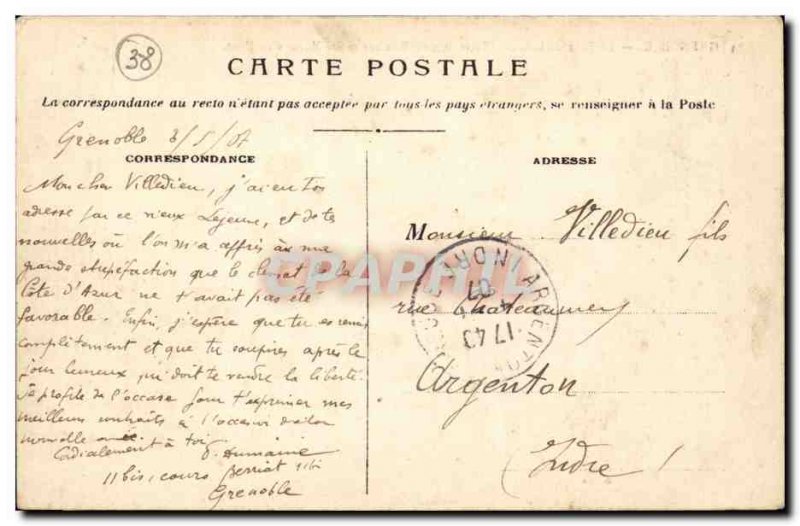 38
CARTE POSTALE
La correspondance au recto n'étant pas acceptée par tous les pays étrangers, se renseigner à la Poste
Grenoble 3/1/07
CORRESPONDANCE
Mon cher Villedieu, j'ai eu ton
adresse par ce vieux Lejeune, et de tes
nouvelles où l'on m'a appris à ma
grande stupéfaction que le climat de la
Côte d'Azur ne t'avait pas été
favorable. Enfin, j'espère que tu es remis
complètement et que tu soupires après le
jour heureux qui doit te rendre la liberté.
Je profite de l'occase pour t'exprimer mes
meilleurs souhaits à l'occasion d'une
nouvelle année.
Cordialement à toi
Dumaine
11 bis, cours Berriat 11 bis
Grenoble
ADRESSE
Monsieur Villedieu fils
rue
Argenton
Indre
ARGENTON INDRE
17 43
07
CPAPHIL